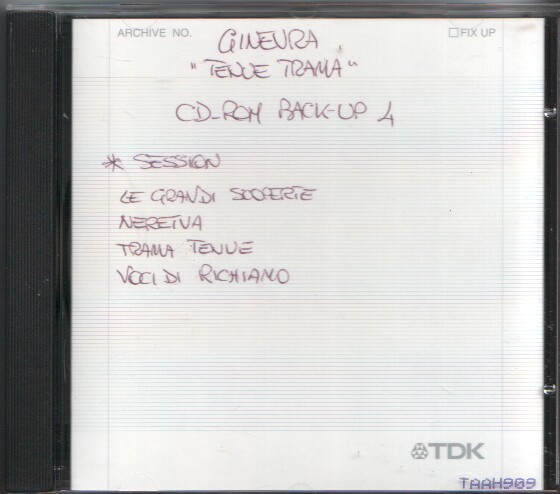 ARCHIVE NO.
FIX UP
GINEVRA
"TENUE TRAMA"
CD-ROM BACK-UP 4
* SESSION
LE GRANDI SCOPERTE
NERETVA
TRAMA TENUE
VOCI DI RICHIAMO
TDK
TAAH909